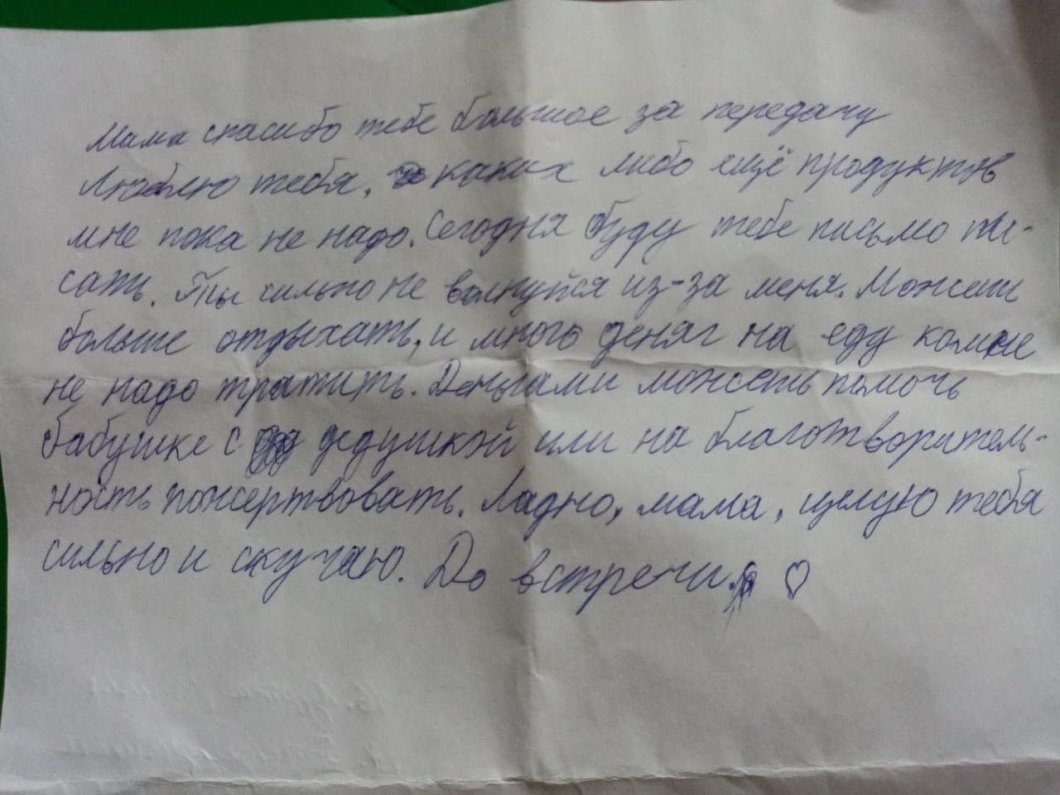 Мама спасибо тебе большое за передачу
Люблю тебя. каких либо ещё продуктов
мне пока не надо. Сегодня буду тебе письмо пи-
сать. Ты сильно не волнуйся из-за меня. Можешь
больше отдыхать, и много денег на еду ко мне
не надо тратить. Деньгами можешь помочь
бабушке с дедушкой или на благотворитель-
ность пожертвовать. Ладно, мама, целую тебя
сильно и скучаю. До встречи.